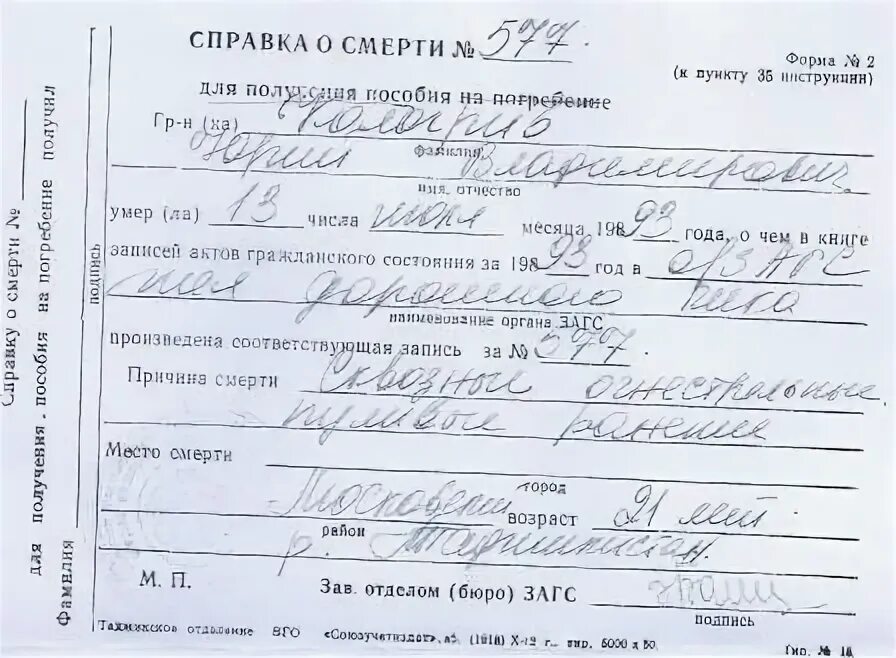 СПРАВКА О СМЕРТИ № 577.
Форма № 2
(к пункту 35 инструкции)
для получения пособия на погребение
Гр-н (ка) Кологрив
фамилия
Юрий Владимирович
имя, отчество
умер (ла) 13 числа июля месяца 19893 года, о чем в книге
записей актов гражданского состояния за 19893 год в о/ЗАГС
наименование органа ЗАГС
произведена соответствующая запись за № 577.
Причина смерти Сквозные огнестрельные
пулевые ранения
Место смерти
город
Московский возраст 21 лет
район
р. Таджикистан.
М. П. Зав. отделом (бюро) ЗАГС
подпись
Таджикское отделение ВГО «Союзучетиздат»
Справку о смерти №
для получения пособия на погребение получил
Фамилия
подпись